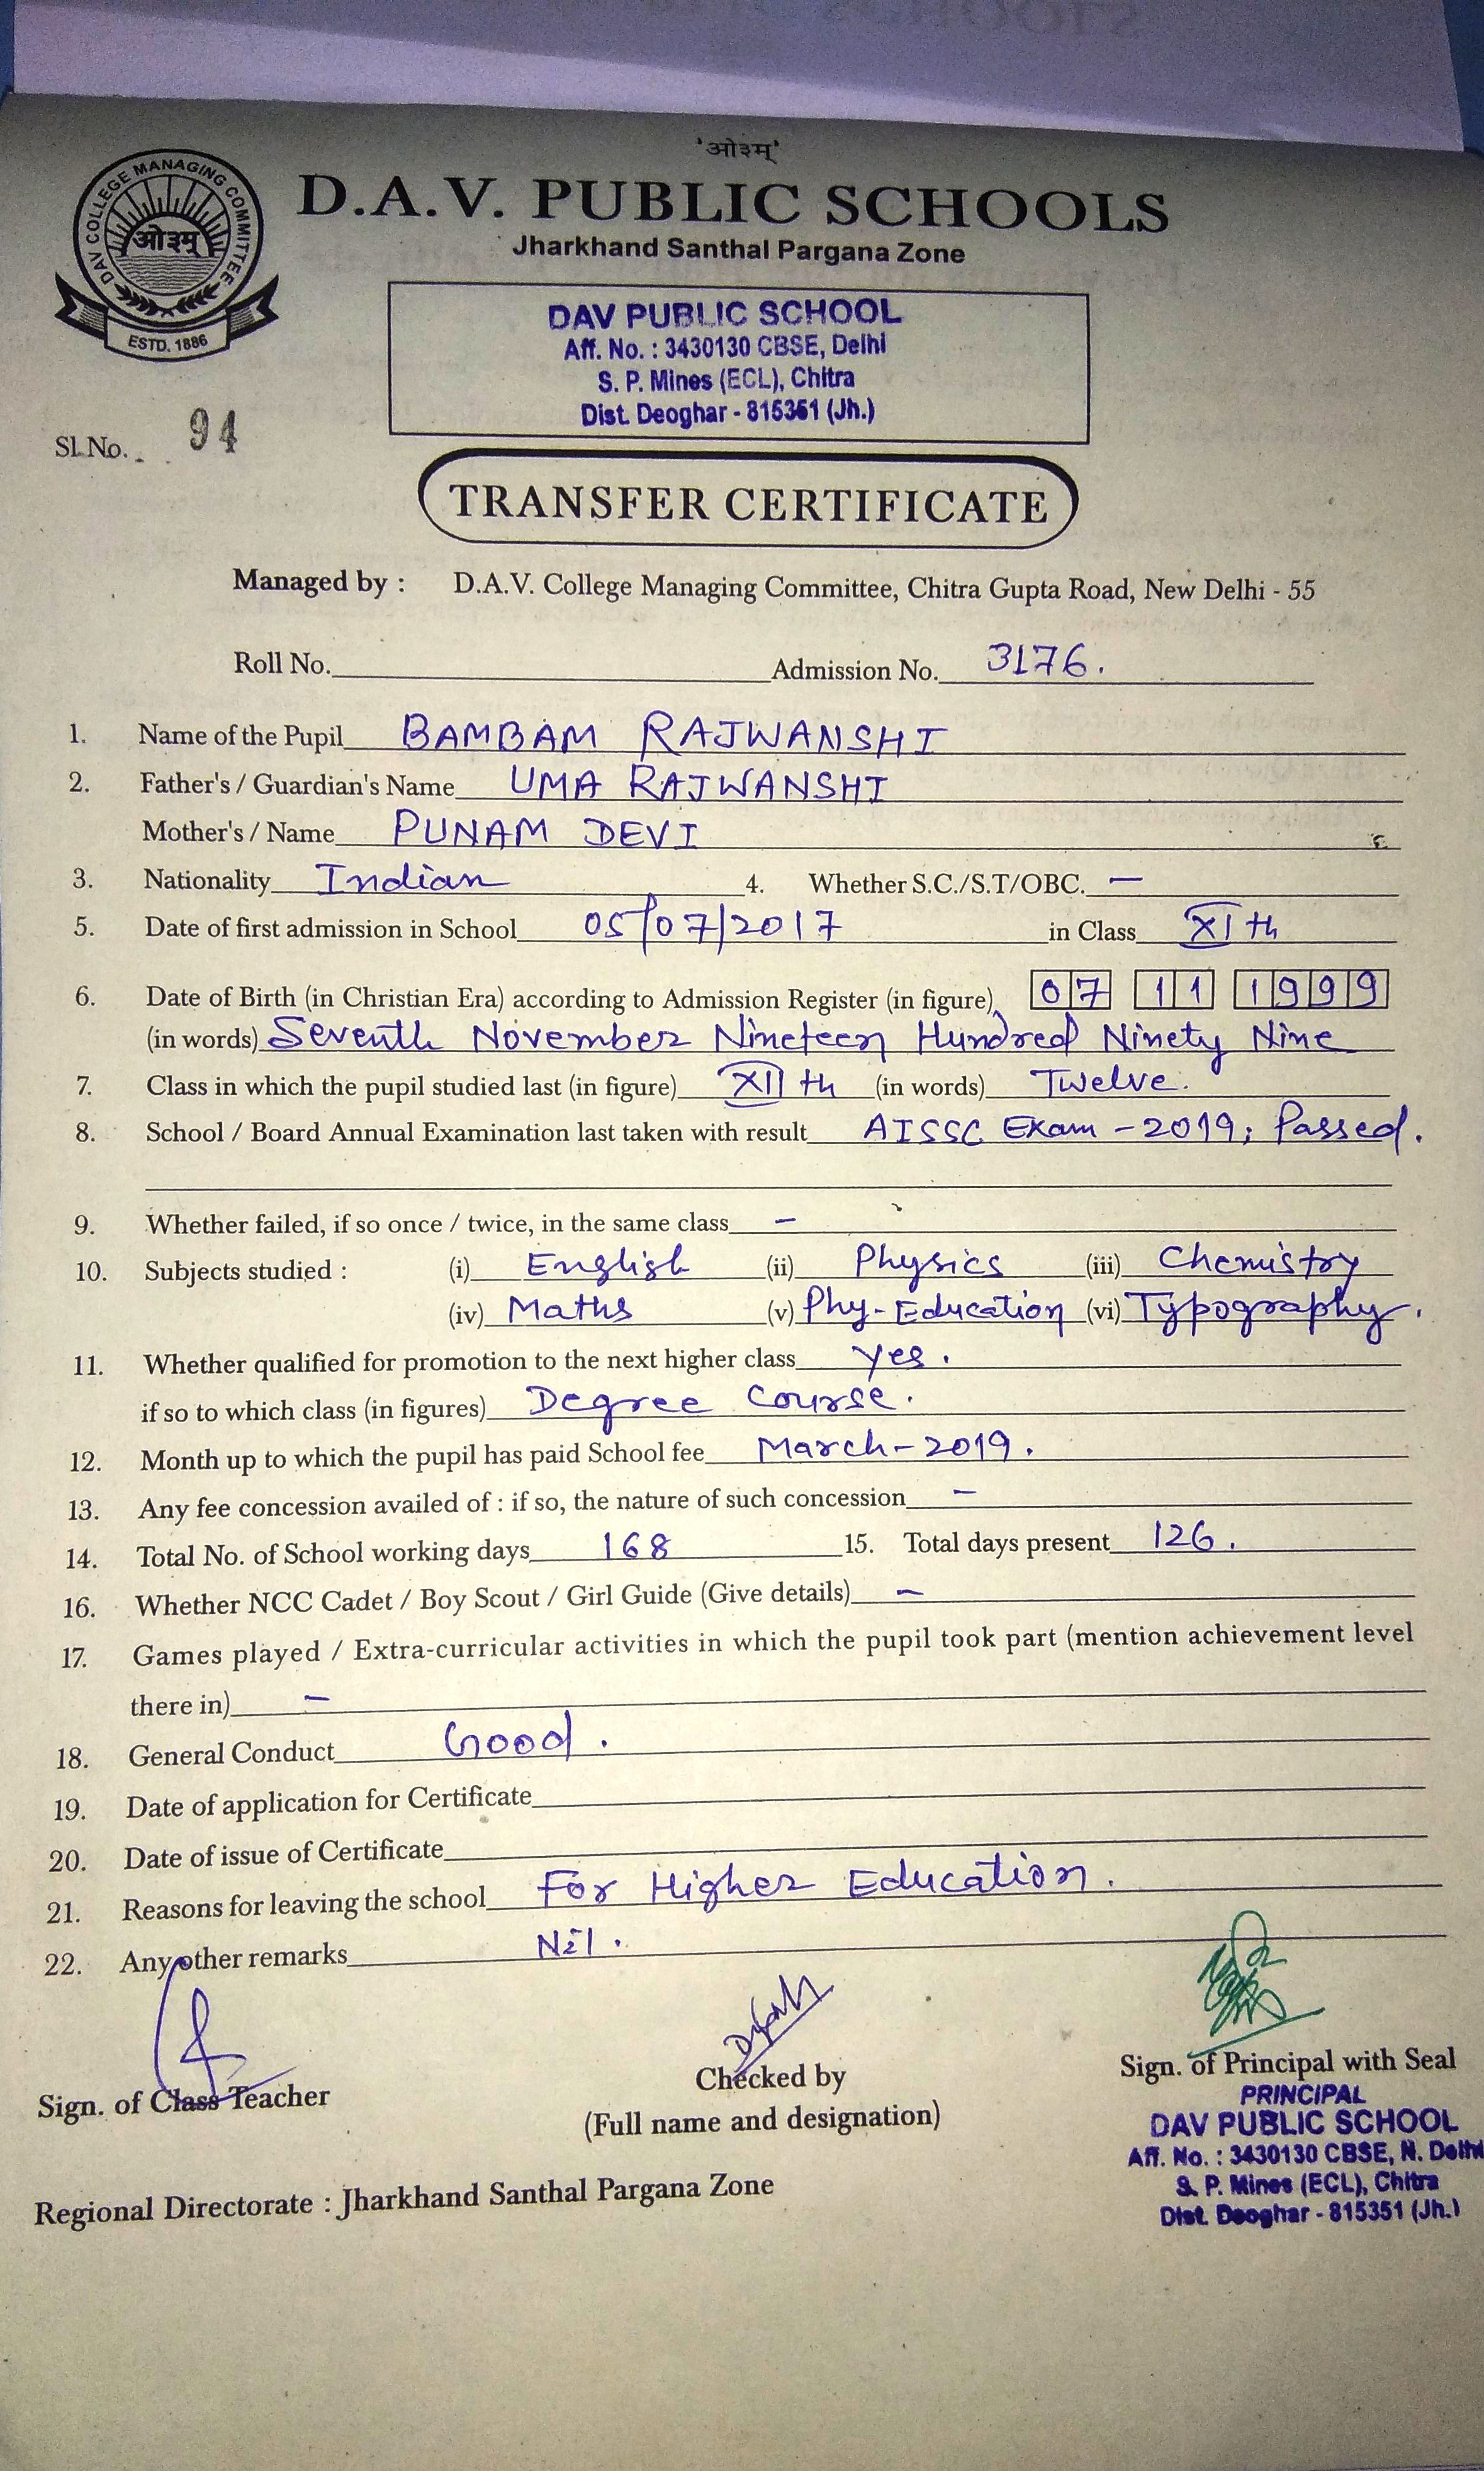 'ओ३म्'
DAV COLLEGE MANAGING COMMITTEE
ओ३म्
ESTD. 1886
D.A.V. PUBLIC SCHOOLS
Jharkhand Santhal Pargana Zone
DAV PUBLIC SCHOOL
Aff. No. : 3430130 CBSE, Delhi
S. P. Mines (ECL), Chitra
Dist. Deoghar - 815351 (Jh.)
Sl.No. 94
TRANSFER CERTIFICATE
Managed by : D.A.V. College Managing Committee, Chitra Gupta Road, New Delhi - 55
Roll No. Admission No. 3176.
1. Name of the Pupil BAMBAM RAJWANSHI
2. Father's / Guardian's Name UMA RAJWANSHI
Mother's / Name PUNAM DEVI
3. Nationality Indian 4. Whether S.C./S.T/OBC. —
5. Date of first admission in School 05/07/2017 in Class XIth
6. Date of Birth (in Christian Era) according to Admission Register (in figure) 07 11 1999
(in words) Seventh November Nineteen Hundred Ninety Nine
7. Class in which the pupil studied last (in figure) XIIth (in words) Twelve.
8. School / Board Annual Examination last taken with result AISSC Exam - 2019; Passed.
9. Whether failed, if so once / twice, in the same class —
10. Subjects studied : (i) English (ii) Physics (iii) Chemistry
(iv) Maths (v) Phy-Education (vi) Typography.
11. Whether qualified for promotion to the next higher class yes.
if so to which class (in figures) Degree Course.
12. Month up to which the pupil has paid School fee March-2019.
13. Any fee concession availed of : if so, the nature of such concession —
14. Total No. of School working days 168 15. Total days present 126.
16. Whether NCC Cadet / Boy Scout / Girl Guide (Give details) —
17. Games played / Extra-curricular activities in which the pupil took part (mention achievement level
there in) —
18. General Conduct Good.
19. Date of application for Certificate
20. Date of issue of Certificate
21. Reasons for leaving the school For Higher Education.
22. Any other remarks Nil.
Sign. of Class Teacher
Checked by
(Full name and designation)
Sign. of Principal with Seal
PRINCIPAL
DAV PUBLIC SCHOOL
Aff. No. : 3430130 CBSE, N. Delhi
S. P. Mines (ECL), Chitra
Dist. Deoghar - 815351 (Jh.)
Regional Directorate : Jharkhand Santhal Pargana Zone